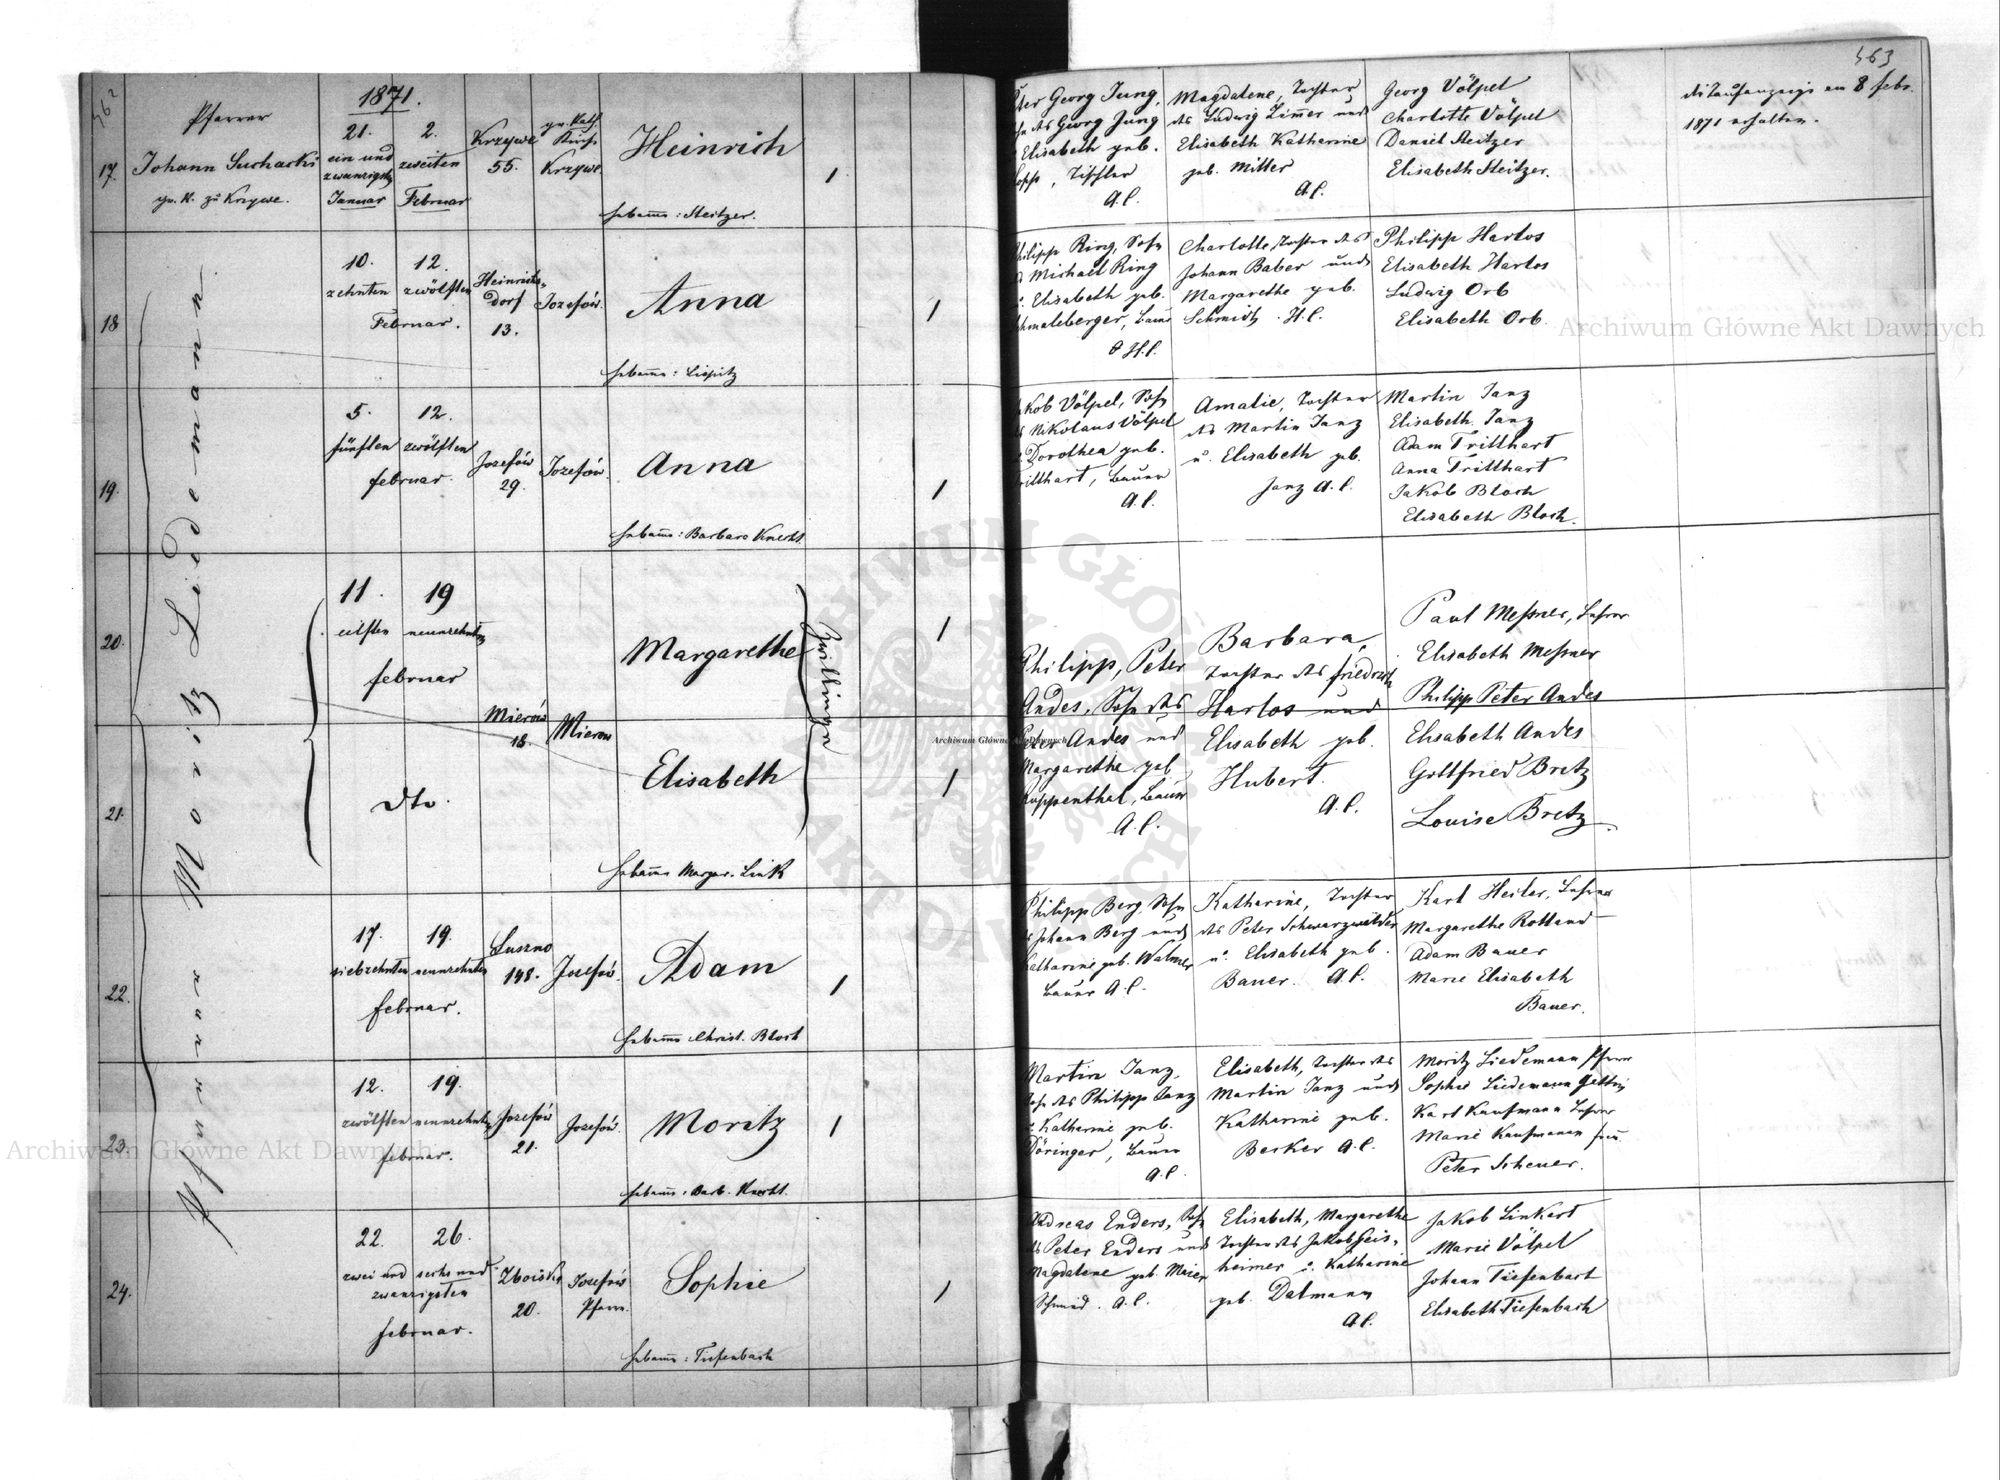 462
1871.
Pfarrer
17.
Johann Suchacki
gr. K. zu Krzywe.
21.
ein und
zwanzigsten
Januar
2.
zweiten
Februar
Krzywe
55.
gr. Kath.
Kirche
Krzywe
Heinrich
1
Hebame: Steitzer.
Pfarrer Moritz Liedemann
18
10. 12.
zehnten zwölften
Februar.
Heinrichs-
dorf
13.
Jozefów.
Anna
1
Hebame: Lippitz
19.
5. 12.
fünften zwölften
Februar.
Jozefów
29.
Jozefów.
Anna
1
Hebame: Barbara Knecht.
20.
11. 19
eilften neunzehnten
Februar
Margarethe
1
Zwillinge
Mierów
18.
Mierow
21.
dto.
Elisabeth
1
Hebame Margar. Link
22.
17. 19.
siebzehnten neunzehnten
Februar.
148.
Jozefów.
Adam
1
Hebame Christ. Bloch
23.
12. 19.
zwölften neunzehnten
Februar.
Jozefów
21.
Jozefów.
Moritz
1
Hebame: Barb. Knecht.
24.
22. 26.
zwei und sechs und
zwanzigsten
Februar.
Zboiska
20.
Jozefów
Pfarre.
Sophie
1
Hebame: Tiefenbach
463
Peter Georg Jung,
Sohn des Georg Jung
u. Elisabeth geb.
Popp, Tischler
A.C.
Magdalene, Tochter
des Ludwig Zimmer und
Elisabeth Katharine
geb. Mitter
A.C.
Georg Völpel
Charlotte Völpel
Daniel Steitzer
Elisabeth Steitzer.
die Taufanzeige am 8 Febr.
1871 erhalten.
Philipp Ring, Sohn
des Michael Ring
u. Elisabeth geb.
Schmaleberger, Bauer
H.C.
Charlotte, Tochter des
Johann Baber und
Margarethe geb.
Schmidt. H.C.
Philipp Harlos
Elisabeth Harlos
Ludwig Orb
Elisabeth Orb.
Jakob Völpel, Sohn
des Nikolaus Völpel
u. Dorothea geb.
Tritthart, Bauer
A.C.
Amalie, Tochter
des Martin Janz
u. Elisabeth geb.
Janz A.C.
Martin Janz
Elisabeth Janz
Adam Tritthart
Anna Tritthart
Jakob Bloch
Elisabeth Bloch.
Philipp, Peter
Andes, Sohn des
Peter Andes und
Margarethe geb.
Ruppenthal, Bauer
A.C.
Barbara,
Tochter des Friedrich
Harlos und
Elisabeth geb.
Hubert.
A.C.
Paul Meßner, Lehrer
Elisabeth Meßner
Philipp Peter Andes
Elisabeth Andes
Gottfried Bretz
Louise Bretz
Philipp Berg, Sohn
des Johann Berg und
Katharine geb. Walmer
Bauer A.C.
Katharine, Tochter
des Peter Schwarzwälder
u. Elisabeth geb.
Bauer. A.C.
Karl Hexler, Lehrer
Margarethe Rolland
Adam Bauer
Marie Elisabeth
Bauer.
Martin Janz,
Sohn des Philipp Janz
u. Katharine geb.
Döringer, Bauer
A.C.
Elisabeth, Tochter des
Martin Janz und
Katharine geb.
Becker A.C.
Moritz Liedemann Pfarrer
Sophie Liedemann Gattin
Karl Kaufmann Lehrer
Marie Kaufmann
Peter Scheuer.
Andreas Enders, Sohn
des Peter Enders und
Magdalene geb. Meier
Schmied. A.C.
Elisabeth, Margarethe
Tochter des Jakob Geis-
heimer u. Katharine
geb. Dalmann
A.C.
Jakob Linkert
Marie Völpel
Johann Tiefenbach
Elisabeth Tiefenbach
Archiwum Główne Akt Dawnych
Archiwum Główne Akt Dawnych
Archiwum Główne Akt Dawnych
ARCHIWUM GŁÓWNE AKT DAWNYCH